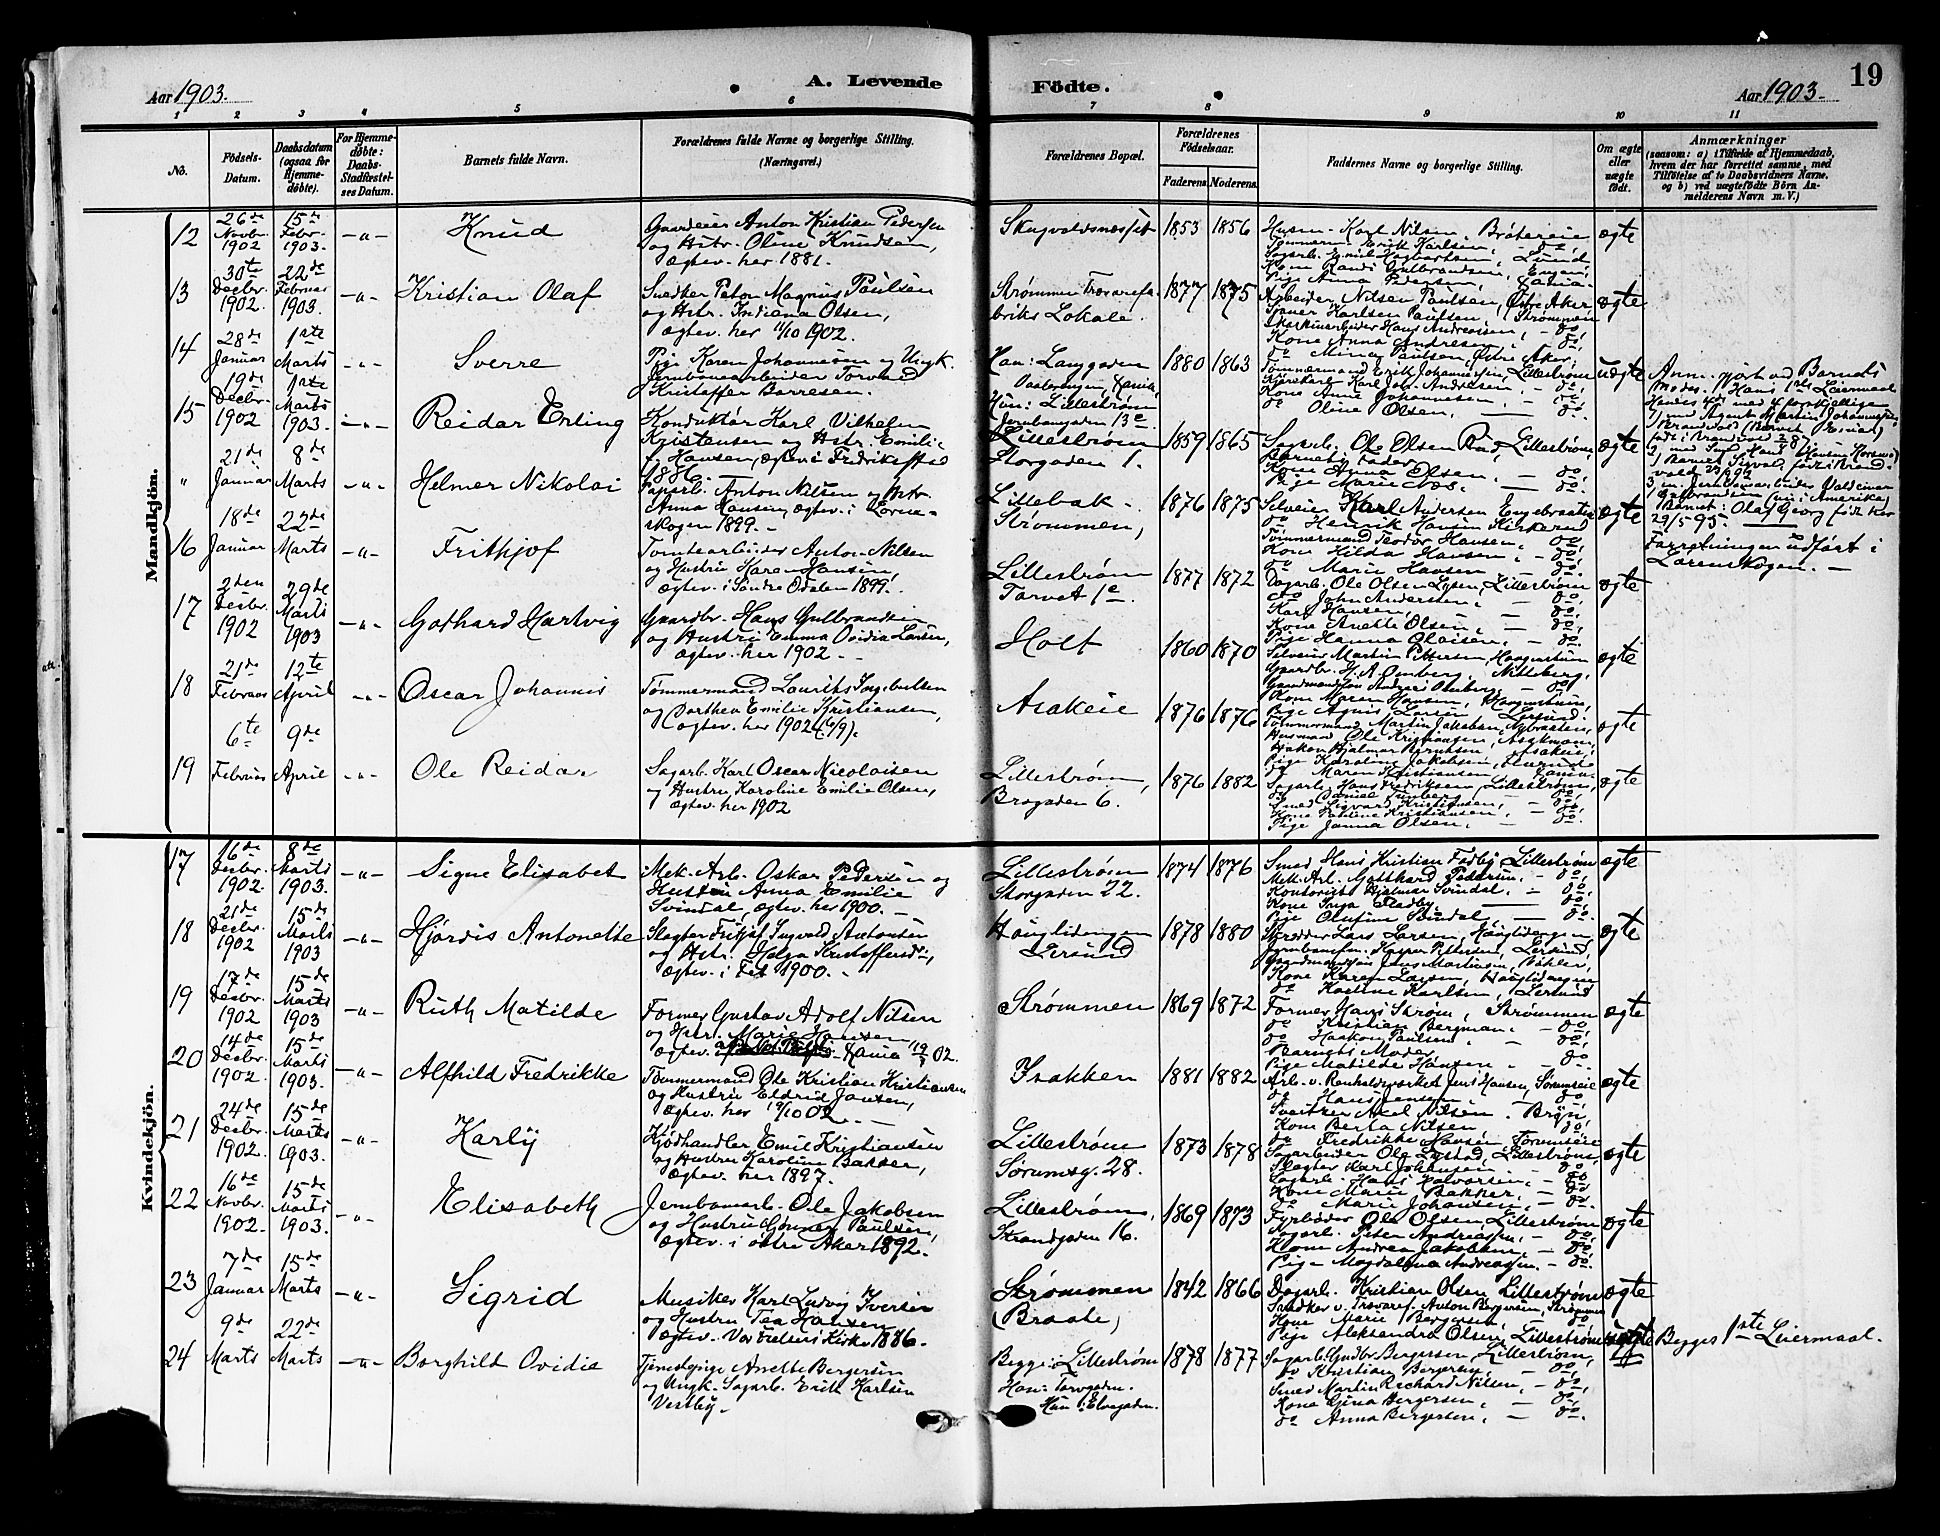 Aar 1903.
A. Levende
Födte.
Aar 1903.
19
1 2 3 4 5 6 7 8 9 10 11
No.
Födsels-
Datum.
Daabsdatum
(ogsaa for
Hjemme-
døbte).
For Hjemme-
døbte:
Daabs-
Stadfæstel-
ses Datum.
Barnets fulde Navn.
Forældrenes fulde Navne og borgerlige Stilling.
(Næringsvei.)
Forældrenes Bopæl.
Forældrenes
Födselsaar.
Faderens. Moderens.
Faddernes Navne og borgerlige Stilling.
Om ægte
eller
uægte
födt.
Anmærkninger
(saasom: a) i Tilfælde af Hjemmedaab,
hvem der har forrettet samme, med
Tilföielse af to Daabsvidners Navne,
og b) ved uægtefödte Börn An-
melderens Navn m. V.)
Mandkjön.
12
26de
Novbr.
1902
15de
Febr.
1903.
-"-
Knud
Gaardeier Anton Kristian Pedersen
og Hstr. Oline Knudsen,
Ægtev. her 1881.
1853 1856
Karl Nilsen,
Erik Karlsen,
Pige Anna Pedersen,
ægte
13
30te
Decbr.
1902.
22de
Februar
1903.
-"-
Kristian Olaf
Snedker Peter Magnus Paulsen
og Hstr. Indiana Olsen,
Ægtev. her 11/10 1902.
Strømmen Trævarefa-
briks Lokale.
1877 1875
Arbeider Nilsen Paulsen, Østre Aker
Karlsen Paulsen, Strømmen
Maskinarbeider Hans Andreassen, - do.
Kone Anna Andresen,
do Mina Paulsen, Østre Aker.
ægte
14
28de
Januar
1ste
Marts
-"-
Sverre
Pige Karen Johannesen og Ungk.
Jernbanearbeider Torvald
Kristoffer Borresen.
Han: Langgaden
Vaalerengen, Xania
Hun: Lillestrøm
Jernbanegaden 13e
1880 1863
Tømmermand Erik Johannessen, Lillestrøm
Karl Joh. Andresen, - do.
Kone Anne Johannesen,
do Oline Olsen, - do.
uægte
Anm. gjort ad Barnets
Moder. Hans 1ste Leiermaal
Hendes 4de med 4 forskjellige
1) med Agent Martin Johannessen
i Brandvold (Barnet Einar)
3 m. Jernbanearbeider Valdemar
Gulbrandsen (nu i Amerika)
Barnet: Olaf Georg født her
29/5-95.
15
19de
Decbr.
1902
1ste
Marts
1903.
-"-
Reidar Erling
Konduktør Karl Vilhelm
Kristensen og Hstr. Emilie
f. Hansen, Ægtev i Fredrikstad
1886.
Lillestrøm
Storgaden 1.
1859 1865
Sagarb. Ole Olsen Rud, Lillestrøm,
Barnets Fader,
Kone Anna Olsen, - do.
Pige Marie Næs, - do.
ægte
"
21de
Januar
8de
Marts
-"-
Helmer Nikolai
Fagarb. Anton Nilsen og Hstr.
Anna Hansen, Ægtev. i Loren-
skogen 1899. -
Lillebak -.
Strømmen,
1876 1875
Selveier Karl Andersen
do Henrik Hansen
Tømmermand Teodor Hansen, do.
Kone Hilda Hansen, - do.
do Marie Hansen - do.
ægte
Forretningen udført i
Lørenskogen. -
16
18de
Januar
22de
Marts
-"-
Frithjof
Tomtearbeider Anton Nilsen
og Hustru Karen Hansen,
Ægtev. i Søndre Odalen 1899.
Lillestrøm
Torvet 1e.
1877 1872
Dagarb. Ole Olsen Lysen, Lillestrøm
do John Andersen, - do.
Karl Hansen, - do.
Kone Anette Olsen, - do.
Pige Hanna Olaisen, - do.
ægte
17
2den
Decbr.
1902
29de
Marts
1903
-"-
Gothard Hartvig
Gaardbr. Hans Gulbrandsen
og Hustru Emma Ovidia Larsen,
Ægtev. her 1902. -
Holt
1860 1870
Selveier Martin Pettersen,
Gaardbr. H. A. Omberg, Nitteberg,
Kone Maren Hansen,
Pige Agnes Larsen
ægte
18
21de
Februar
12te
April
-"-
Oscar Johannes
Tømmermand Laurits Ingebretsen
og Dorthea Emilie Kristiansen,
Ægtev. her 1902 (6/9).
Asakeie
1876 1876
Tømmermand Martin Jakobsen,
Husmand Ole Kristiansen,
Pige Karoline Jakobsen,
do Maren Kristiansen
ægte
19
6te
Februar
9de
April
-"-
Ole Reidar
Sagarb. Karl Oscar Nicolaisen
og Hustru, Karoline Emilie Olsen,
Ægtev. her 1902
Lillestrøm,
Brogaden 6.
1876 1882
Sagarb. Hans Fredriksen, Lillestrøm,
Smed Sigvard Kristiansen, - do.
Kone Pauline Kristiansen, - do.
Pige Janna Olsen, - do.
ægte
Kvindekjön.
17
16de
Decbr.
1902
8de
Marts
1903.
-"-
Signe Elisabet
Mek. Arb. Oskar Pedersen og
Hustru Anna Emilie
Svindal, Ægtev. her 1900. -
Lillestrøm
Storgaden 22.
1874 1876
Smed Hans Kristian Fladby, Lillestrøm
Mek. Arb. Gotthard Pedersen, - do.
Kontorist Hjalmar Svindal, - do.
Kone Inga Fladby, - do.
Pige Olufine Svindal, - do.
ægte
18
21de
Decbr.
1902
15de
Marts
1903
-"-
Hjørdis Antonette
Slagter Fritjof Ingvald Antonsen
og Hstr. Helga Kristoffersdt.,
Ægtev. i Fet 1900. -
Hauglidengen
Lersund
1878 1880
Skredder Lars Larsen, Hauglidengen,
Kone Karen Larsen, Hauglidengen
do Kaspara Karlsen, Lersund
ægte
19
17de
Decbr.
1902
15de
Marts
1903
-"-
Ruth Matilde
Former Gustav Adolf Nilsen
og Hstr. Marie Hansen
Ægtev. Xania 19/7 02.
Strømmen
1869 1872
Former Hans Strøm, Strømmen
do Kristian Bergman, - do.
do Haakon Paulsen - do.
Barnets Moder, do
Pige Matilde Hansen - do.
ægte
20
14de
Decbr.
1902.
15de
Marts
1903.
-"-
Alfhild Fredrikke
Tømmermand Ole Kristian Kristiansen
og Hustru Eldrid Jansen,
Ægtev. her 19/10 02. -
Isakken
1881 1882
Arb. v. Renholdsverket Jens Hansen,
do Hans Jensen, do
Axel Nilsen. Bryn,
Kone Berta Nilsen do.
do Fredrikke Hansen
ægte
21
24de
Decbr.
1902.
15de
Marts
1903.
-"-
Karly
Kjødhandler Emil Kristiansen
og Hustru Karoline Bakker,
Ægtev. her 1897.
Lillestrøm
Sørumsg. 28.
1873 1878
Sagarbeider Ole Lystad, Lillestrøm,
Slagter Karl Johansen, - do
Sagarb. Hans Halvorsen, - do.
Kone Marie Bakker, - do.
do Marie Johansen, - do.
ægte
22
16de
Novbr.
1902.
15de
Marts
1903.
-"-
Elisabeth
Jernbanearb. Ole Jakobsen
og Hustru Gunner Paulsen,
Ægtev. i østre Aker 1892.
Lillestrøm,
Strandgaden 16.
1869 1873
Fyrbøder Ole Olsen, Lillestrøm
Sagarb. Peter Andreassen, - do.
Kone Andrea Jakobsen, - do.
Pige Magdalena Andreassen. - do.
ægte
23
7de
Januar
15de
Marts
-"-
Sigrid
Musiker Karl Ludvig Iversen
og Hustru Tea Hansen
Ægtev. Vor Frelsers Kirke 1886.
Strømmen
(Braate)
1842 1866
Dagarb. Kristian Olsen Lillestrøm
Snedker v. Trævaref. Anton Bergersen, Strømmen
Kone Marie Bergersen, - do.
Pige Aleksandra Olsen, Lillestrøm
ægte
24
9de
Marts
22de
Marts
-"-
Borghild Ovidie
Tjenestepige Anette Bergersen
og Ungk. Sagarb. Erik Karlsen
Vestby. -
Begge: Lillestrøm
Han: Torvgaden.
Hun: Elvegaden.
1878 1877
Sagarb. Gudbr. Bergersen, Lillestrøm,
do Kristian Bergersen, - do.
Smed Martin Richard Nilsen, - do.
Kone Gina Bergersen, - do.
do Anna Bergersen, - do.
Begges 1ste Leiermaal.